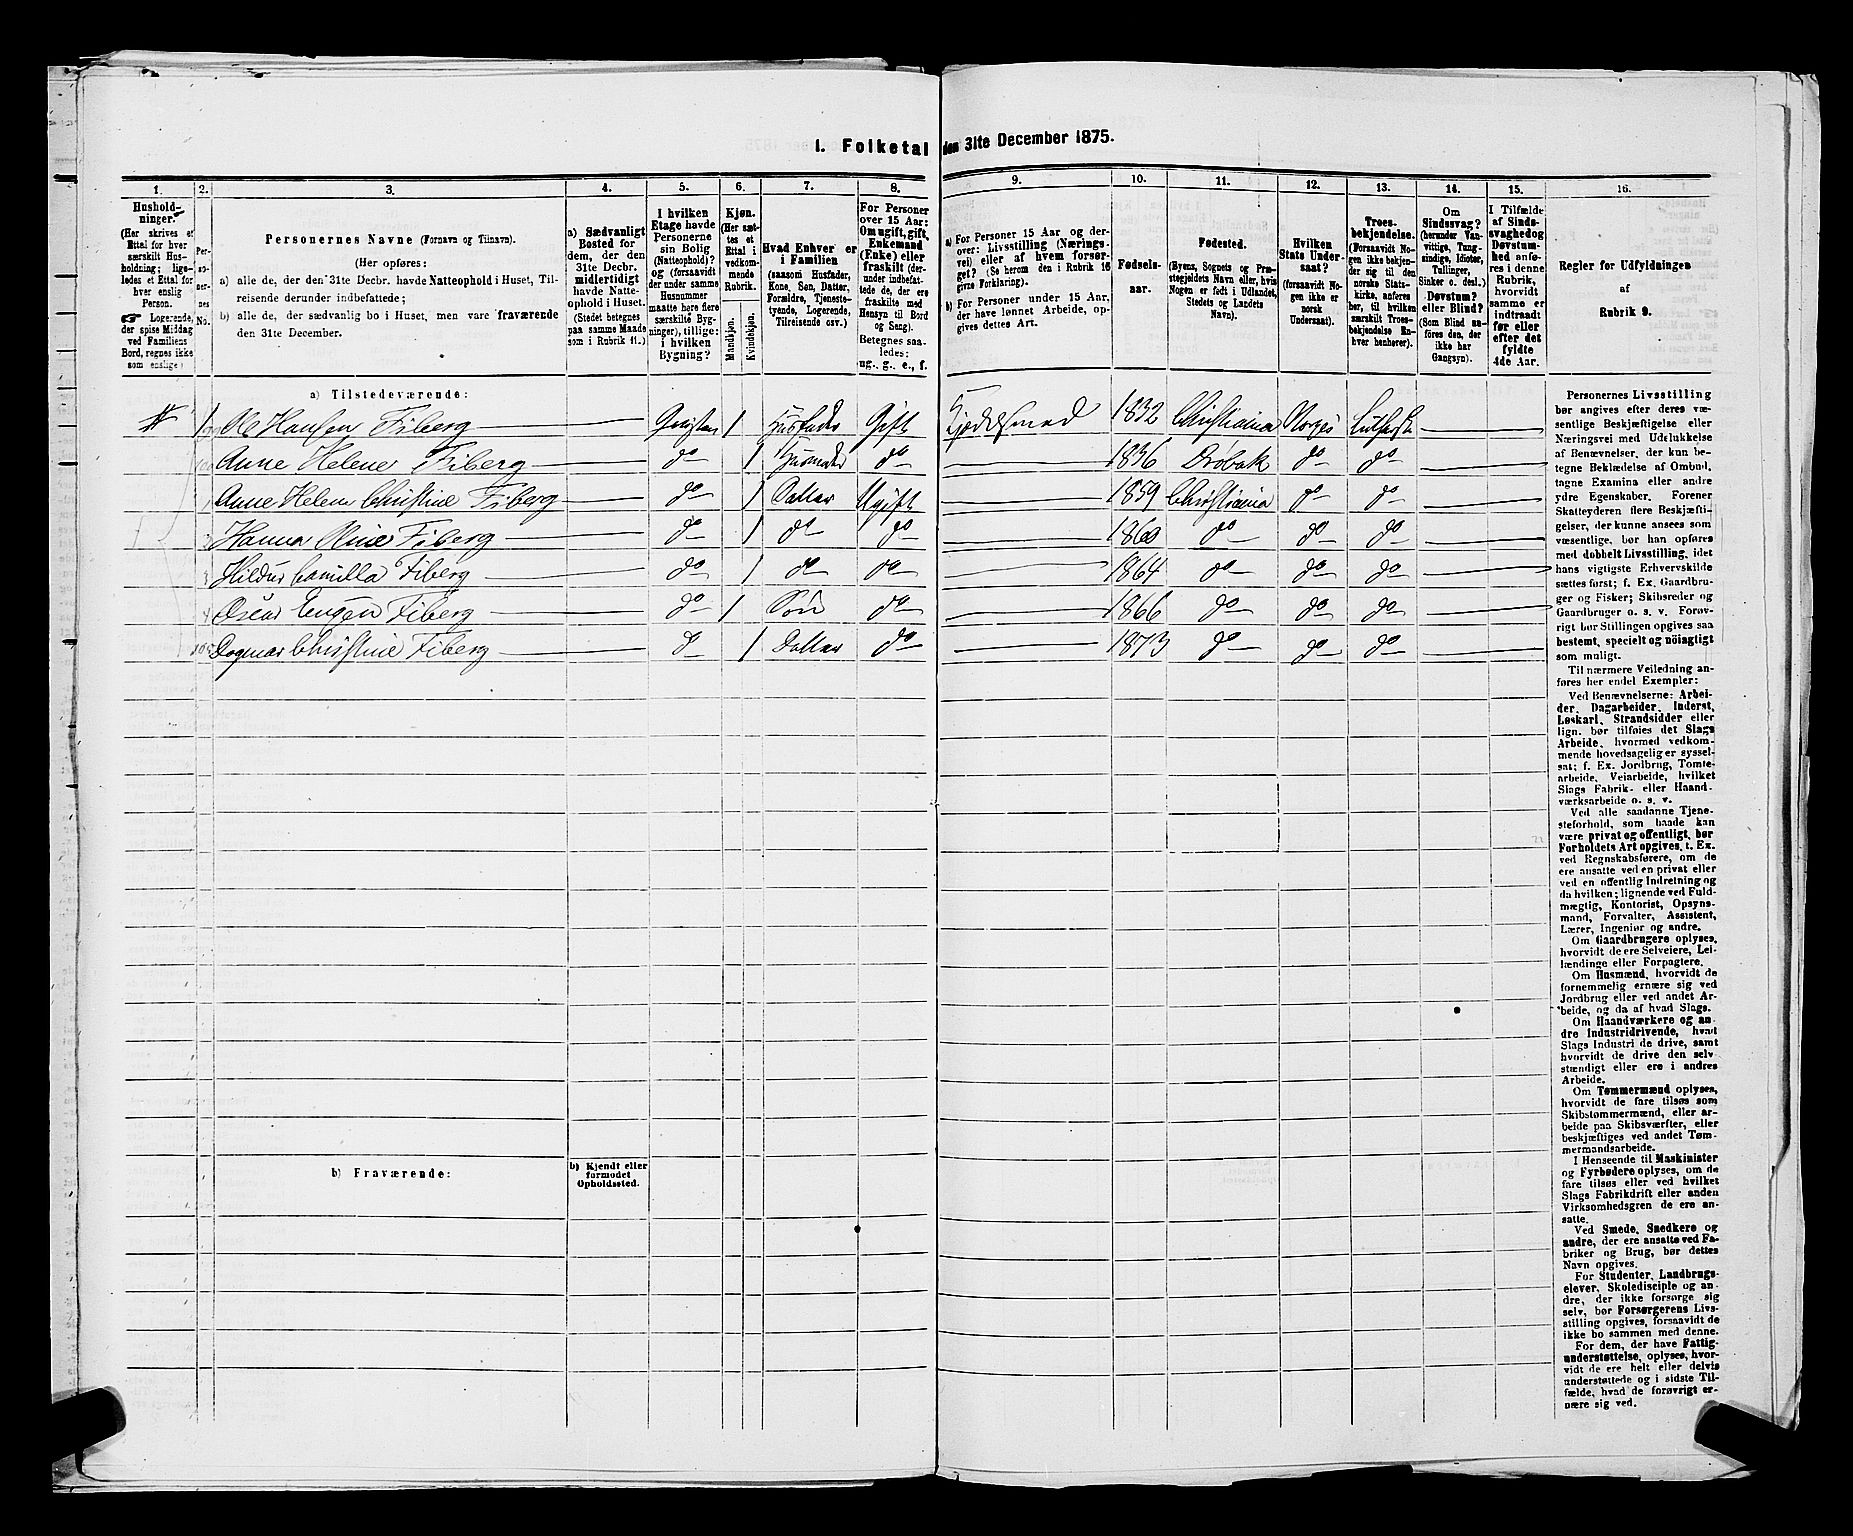 1. Folketal den 31te December 1875.
1. 2. 3. 4. 5. 6. 7. 8. 9. 10. 11. 12. 13. 14. 15. 16.
Hushold-
ninger.
(Her skrives et
Ettal for hver
særskilt Hus-
holdning; lige-
ledes et Ettal for
hver enslig
Person.
☞ Logerende,
der spise Middag
ved Familiens
Bord, regnes ikke
som enslige)
Per-
so-
ner-
nes
No.
Personernes Navne (Fornavn og Tilnavn).
(Her opføres:
a) alle de, der den 31te Decbr. havde Natteophold i Huset, Til-
reisende derunder indbefattede;
b) alle de, der sædvanlig bo i Huset, men vare fraværende
den 31te December.
a) Sædvanligt
Bosted for
dem, der den
31te Decbr.
midlertidigt
havde Natte-
ophold i Huset.
(Stedet betegnes
paa samme Maade
som i Rubrik 11.)
I hvilken
Etage havde
Personerne
sin Bolig
(Natteophold)?
og (forsaavidt
der under samme
Husnummer
maatte høre flere
særskilte Byg-
ninger), tillige:
i hvilken
Bygning?
Kjøn.
(Her sæt-
tes et
Ettal i
vedkom-
mende
Rubrik.
Mandkjøn.
Kvindekjøn.
Hvad Enhver er
i Familien
(saasom Husfader,
Kone, Søn, Datter,
Forældre, Tjeneste-
tyende, Logerende,
Tilreisende osv.)
For Personer
over 15 Aar:
Om ugift, gift,
Enkemand
(Enke) eller
fraskilt (der-
under indbefat-
tede de, der ere
fraskilte med
Hensyn til Bord
og Seng).
Betegnes saa-
ledes:
ug., g., e., f.
a) For Personer 15 Aar og der-
over: Livsstilling (Nærings-
vei) eller af hvem forsør-
get? (Se herom den i Rubrik 16
givne Forklaring).
b) For Personer under 15 Aar,
der have lønnet Arbeide, op-
gives dettes Art.
Fødsels-
aar.
Fødested.
(Byens, Sognets og Præ-
stegjeldets Navn eller, hvis
Nogen er født i Udlandet,
Stedets og Landets
Navn).
Hvilken
Stats Under-
saat?
(forsaavidt No-
gen ikke er
norsk
Undersaat).
Troes-
bekjendelse.
(Forsaavidt No-
gen ikke bekjen-
der sig til den
norske Stats-
kirke, anføres
her, til hvilken
særskilt Troes-
bekjendelse En-
hver henhører).
Om
Sindssvag?
(herunder Van-
vittige, Tung-
sindige, Idioter,
Tullinger,
Sinker o. desl.)
Døvstum?
eller Blind?
(Som Blind an-
føres den, der
ikke har
Gangsyn).
I Tilfælde
af Sinds-
svaghed og
Døvstum-
hed anfø-
res i denne
Rubrik,
hvorvidt
samme er
indtraadt
før eller
efter det
fyldte
4de Aar.
Regler for Udfyldningen
af
Rubrik 9.
a) Tilstedeværende:
Ole Hansen Fiberg 1 Husfader Gift Gjørtelsmed 1832 Christiania Norges Luthersk
Anne Helene Fiberg do 1 Husmoder do 1836 Drøbak do do
Anne Helene Christine Fiberg do 1 Datter Ugift 1859 Christiania do do
Hanna Oline Fiberg do 1 do do 1860 do do do
Hildur Camilla Fiberg do 1 do do 1864 do do do
Oscar Eugen Fiberg do 1 Søn do 1866 do do do
Dagmar Christine Fiberg do 1 Datter do 1873 do do do
b) Fraværende:
b) Kjendt eller
formodet
Opholdssted.
Personernes Livsstilling
bør angives efter deres væ-
sentlige Beskjæftigelse eller
Næringsvei med Udelukkelse
af Benævnelser, der kun be-
tegne Beklædelse af Ombud,
tagne Examina eller andre
ydre Egenskaber. Forener
Skatteyderen flere Beskjæfti-
gelser, der kunne ansees som
væsentlige, bør han opføres
med dobbelt Livsstilling, idet
hans vigtigste Erhvervskilde
sættes først; f. Ex. Gaardbru-
ger og Fisker; Skibsreder og
Gaardbruger o. s. v. Forøv-
rigt bør Stillingen opgives saa
bestemt, specielt og nöiagtigt
som muligt.
Til nærmere Veiledning an-
føres her endel Exempler:
Ved Benævnelserne: Arbei-
der, Dagarbeider, Inderst,
Løskarl, Strandsidder eller
lign. bør tilføies det Slags
Arbeide, hvormed vedkom-
mende hovedsagelig er syssel-
sat; f. Ex. Jordbrug, Tomte-
arbeide, Veiarbeide, hvilket
Slags Fabrik- eller Haand-
værksarbeide o. s. v.
Ved alle saadanne Tjene-
steforhold, som baade kan
være privat og offentligt, bør
Forholdets Art opgives, t. Ex.
ved Regnskabsførere, om de
ere ansatte ved en privat eller
ved en offentlig Indretning og
da hvilken; lignende ved Fuld-
mægtig, Kontorist, Opsyns-
mand, Forvalter, Assistent,
Lærer, Ingeniør og andre.
Om Gaardbrugere oplyses,
hvorvidt de ere Selveiere, Lei-
lændinge eller Forpagtere.
Om Husmænd, hvorvidt de
fornemmelig ernære sig ved
Jordbrug eller ved andet Ar-
beide, og da af hvad Slags.
Om Haandværkere og an-
dre Industridrivende, hvad
Slags Industri de drive, samt
hvorvidt de drive den selv-
stændigt eller ere i andres
Arbeide.
Om Tømmermænd oplyses,
hvorvidt de fare tilsøs som
Skibstømmermænd, eller ar-
beide paa Skibsværfter, eller
beskjæftiges ved andet Tøm-
mermandsarbeide.
I Henseende til Maskinister
og Fyrbødere oplyses, om de
fare tilsøs eller ved hvilket
Slags Fabrikdrift eller anden
Virksomhedsgren de ere an-
satte.
Ved Smede, Snedkere og
andre, der ere ansatte ved Fa-
briker og Brug, bør dettes
Navn opgives.
For Studenter, Landbrugs-
elever, Skoledisciple og an-
dre, der ikke forsørge sig
selv, bør Forsørgerens Livs-
stilling opgives, forsaavidt de
ikke bo sammen med denne.
For dem, der have Fattig-
understøttelse, oplyses, hvor-
vidt de ere helt eller delvis
understøttede og i sidste Til-
fælde, hvad de forøvrigt er-
nære sig ved.